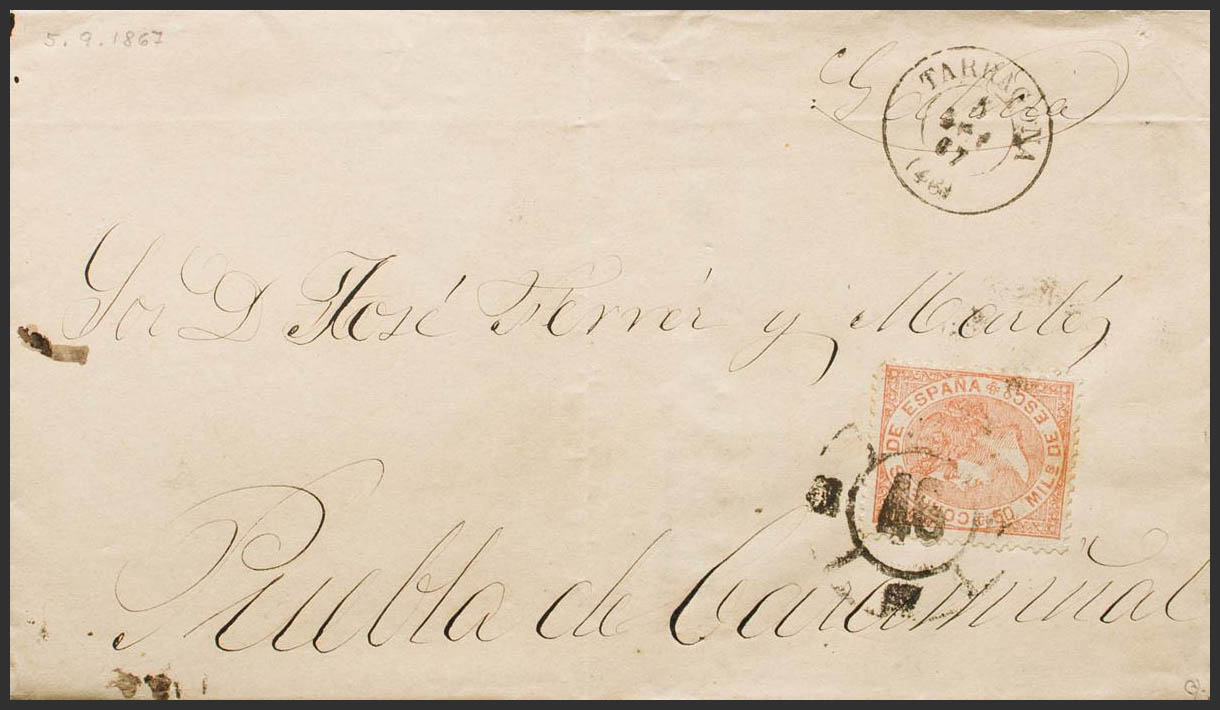 5.9.1867
Galicia
TARRAGONA
5 SET 67
(46)
Sor D José Ferrer y
CORREOS DE ESPAÑA
50 MILs DE ESCo
46
Puebla de Caramiñal